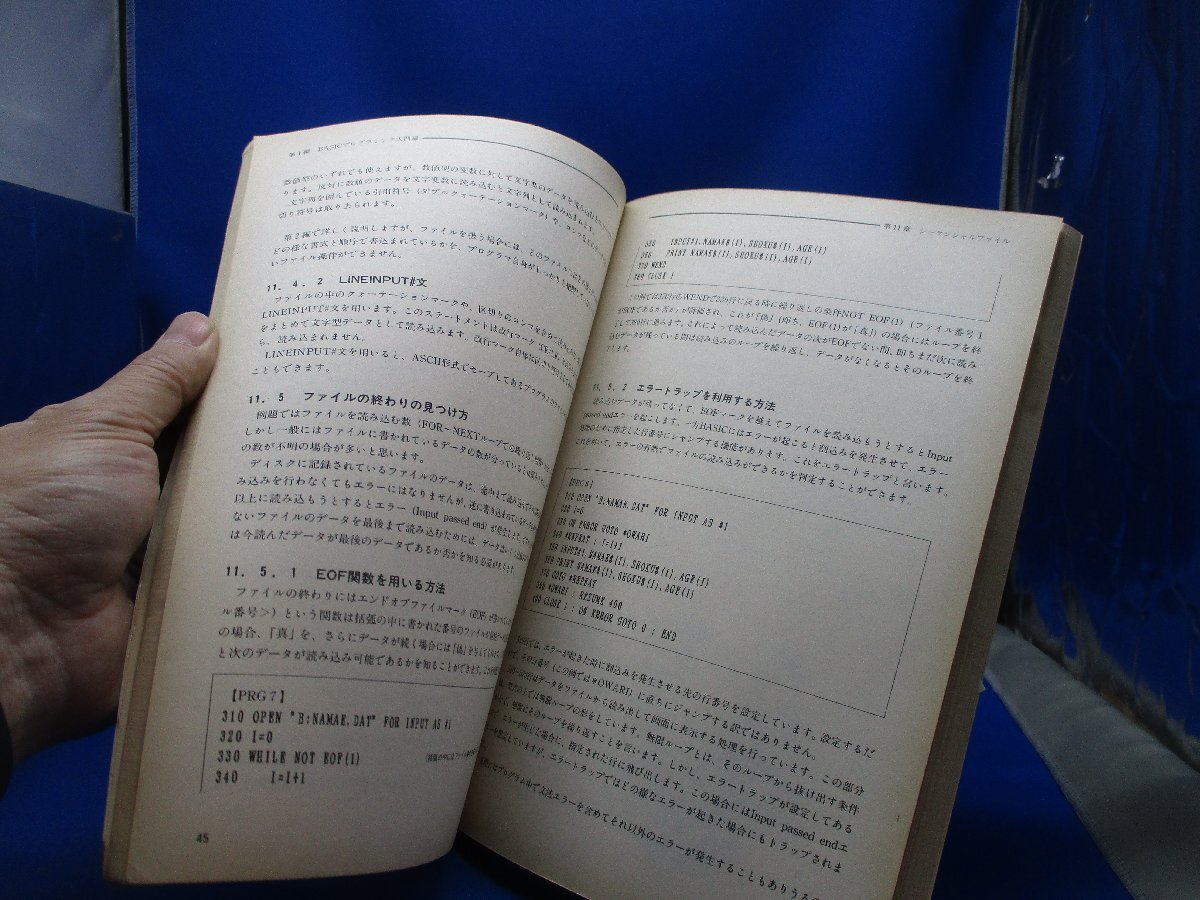 第1編 BASICプログラミング入門編
数値型のいずれでも使えますが、数値型の変数に対して文字型のデータを
ります。反対に数値のデータを文字変数に読み込むと文字列として読み込まれます。
文字列を囲んでいる引用符号（ダブルクォーテーションマーク）や、
切り符号は取り去られます。
第2編で詳しく説明しますが、ファイルを扱う場合には、どのファイルに
どの様な書式と順序で書込まれているかを、プログラマ自身が
いファイル操作ができません。
11．4．2 LINEINPUT#文
ファイルの中のクォーテーションマークや、区切りのコンマを
LINEINPUT#文を用います。このステートメントは改行マーク
をまとめて文字型データとして読み込みます。改行マーク自体は
ら、読み込まれません。
LINEINPUT#文を用いると、ASCII形式でセーブしてあるプログラム
こともできます。
11．5 ファイルの終わりの見つけ方
例題ではファイルを読み込む数（FOR～NEXTループでの繰り返し
しかし一般にはファイルに書かれているデータの数が分っている
の数が不明の場合が多いと思います。
ディスクに記録されているファイルのデータは、途中まで読み込んで
み込みを行わなくてもエラーにはなりませんが、逆に書き込まれている
以上に読み込もうとするとエラー（Input passed end）が発生
ないファイルのデータを最後まで読み込むためには、データ
は今読んだデータが最後のデータであるか否かを知る必要が
11．5．1 EOF関数を用いる方法
ファイルの終わりにはエンドオブファイルマーク（EOF）が
ル番号＞）という関数は括弧の中に書かれた番号のファイルが
の場合、「真」を、さらにデータが続く場合には「偽」を
と次のデータが読み込み可能であるかを知ることができます。
【PRG7】
310 OPEN "B:NAMAE.DAT" FOR INPUT AS #1
320 I=0
330 WHILE NOT EOF(1)
340 I=I+1
45
第11章 シーケンシャルファイル
350 INPUT#1,NAMAE$(I),SHOKU$(I),AGE(I)
360 PRINT NAMAE$(I),SHOKU$(I),AGE(I)
370 WEND
380 CLOSE 1
この例では370行のWENDで330行に戻る時に繰り返しの条件NOT EOF(1)（ファイル番号1
がEOFであるか否か）が評価され、これが「偽」（即ち、EOF(1)が「真」）の場合にはループを終
了して380行に進みます。これによって読み込んだデータの次がEOFでない間、即ちまだ次に読み
込むデータが残っている間は読み込みのループを繰り返し、データがなくなるとそのループを終
わります。
11．5．2 エラートラップを利用する方法
読み込むデータが残ってなくて、EOFマークを越えてファイルを読み込もうとするとInput
passed endエラーを起こします。一方BASICにはエラーが起こると割込みを発生させて、エラー
処理のために指定した行番号にジャンプする機能があります。これをエラートラップと言います。
これを用いて、エラーの有無でファイルの読み込みができるかを判定することができます。
【PRG8】
310 OPEN "B:NAMAE.DAT" FOR INPUT AS #1
320 I=0
330 ON ERROR GOTO *OWARI
340 *REPEAT : I=I+1
350 INPUT#1,NAMAE$(I),SHOKU$(I),AGE(I)
360 PRINT NAMAE$(I),SHOKU$(I),AGE(I)
370 GOTO *REPEAT
*OWARI : RESUME 400
400 CLOSE 1 : ON ERROR GOTO 0 : END
では、エラーが起きた時に割込みを発生させる先の行番号を設定しています。設定するだ
で、その行番号（この例では*OWARI）に直ちにジャンプする訳ではありません。
行はデータをファイルから読み出して画面に表示する処理を行っています。この部分
は無限ループの形をしています。無限ループとは、そのループから抜け出す条件
にそのループを繰り返すことを言います。しかし、エラートラップが設定してある
エラーが生じた場合に、指定された行に飛び出します。この場合にはInput passed endエ
を想定していますが、エラートラップではどの様なエラーが起きた場合にもトラップされま
プログラム中で文法エラーを含めてそれ以外のエラーが発生することもありうる